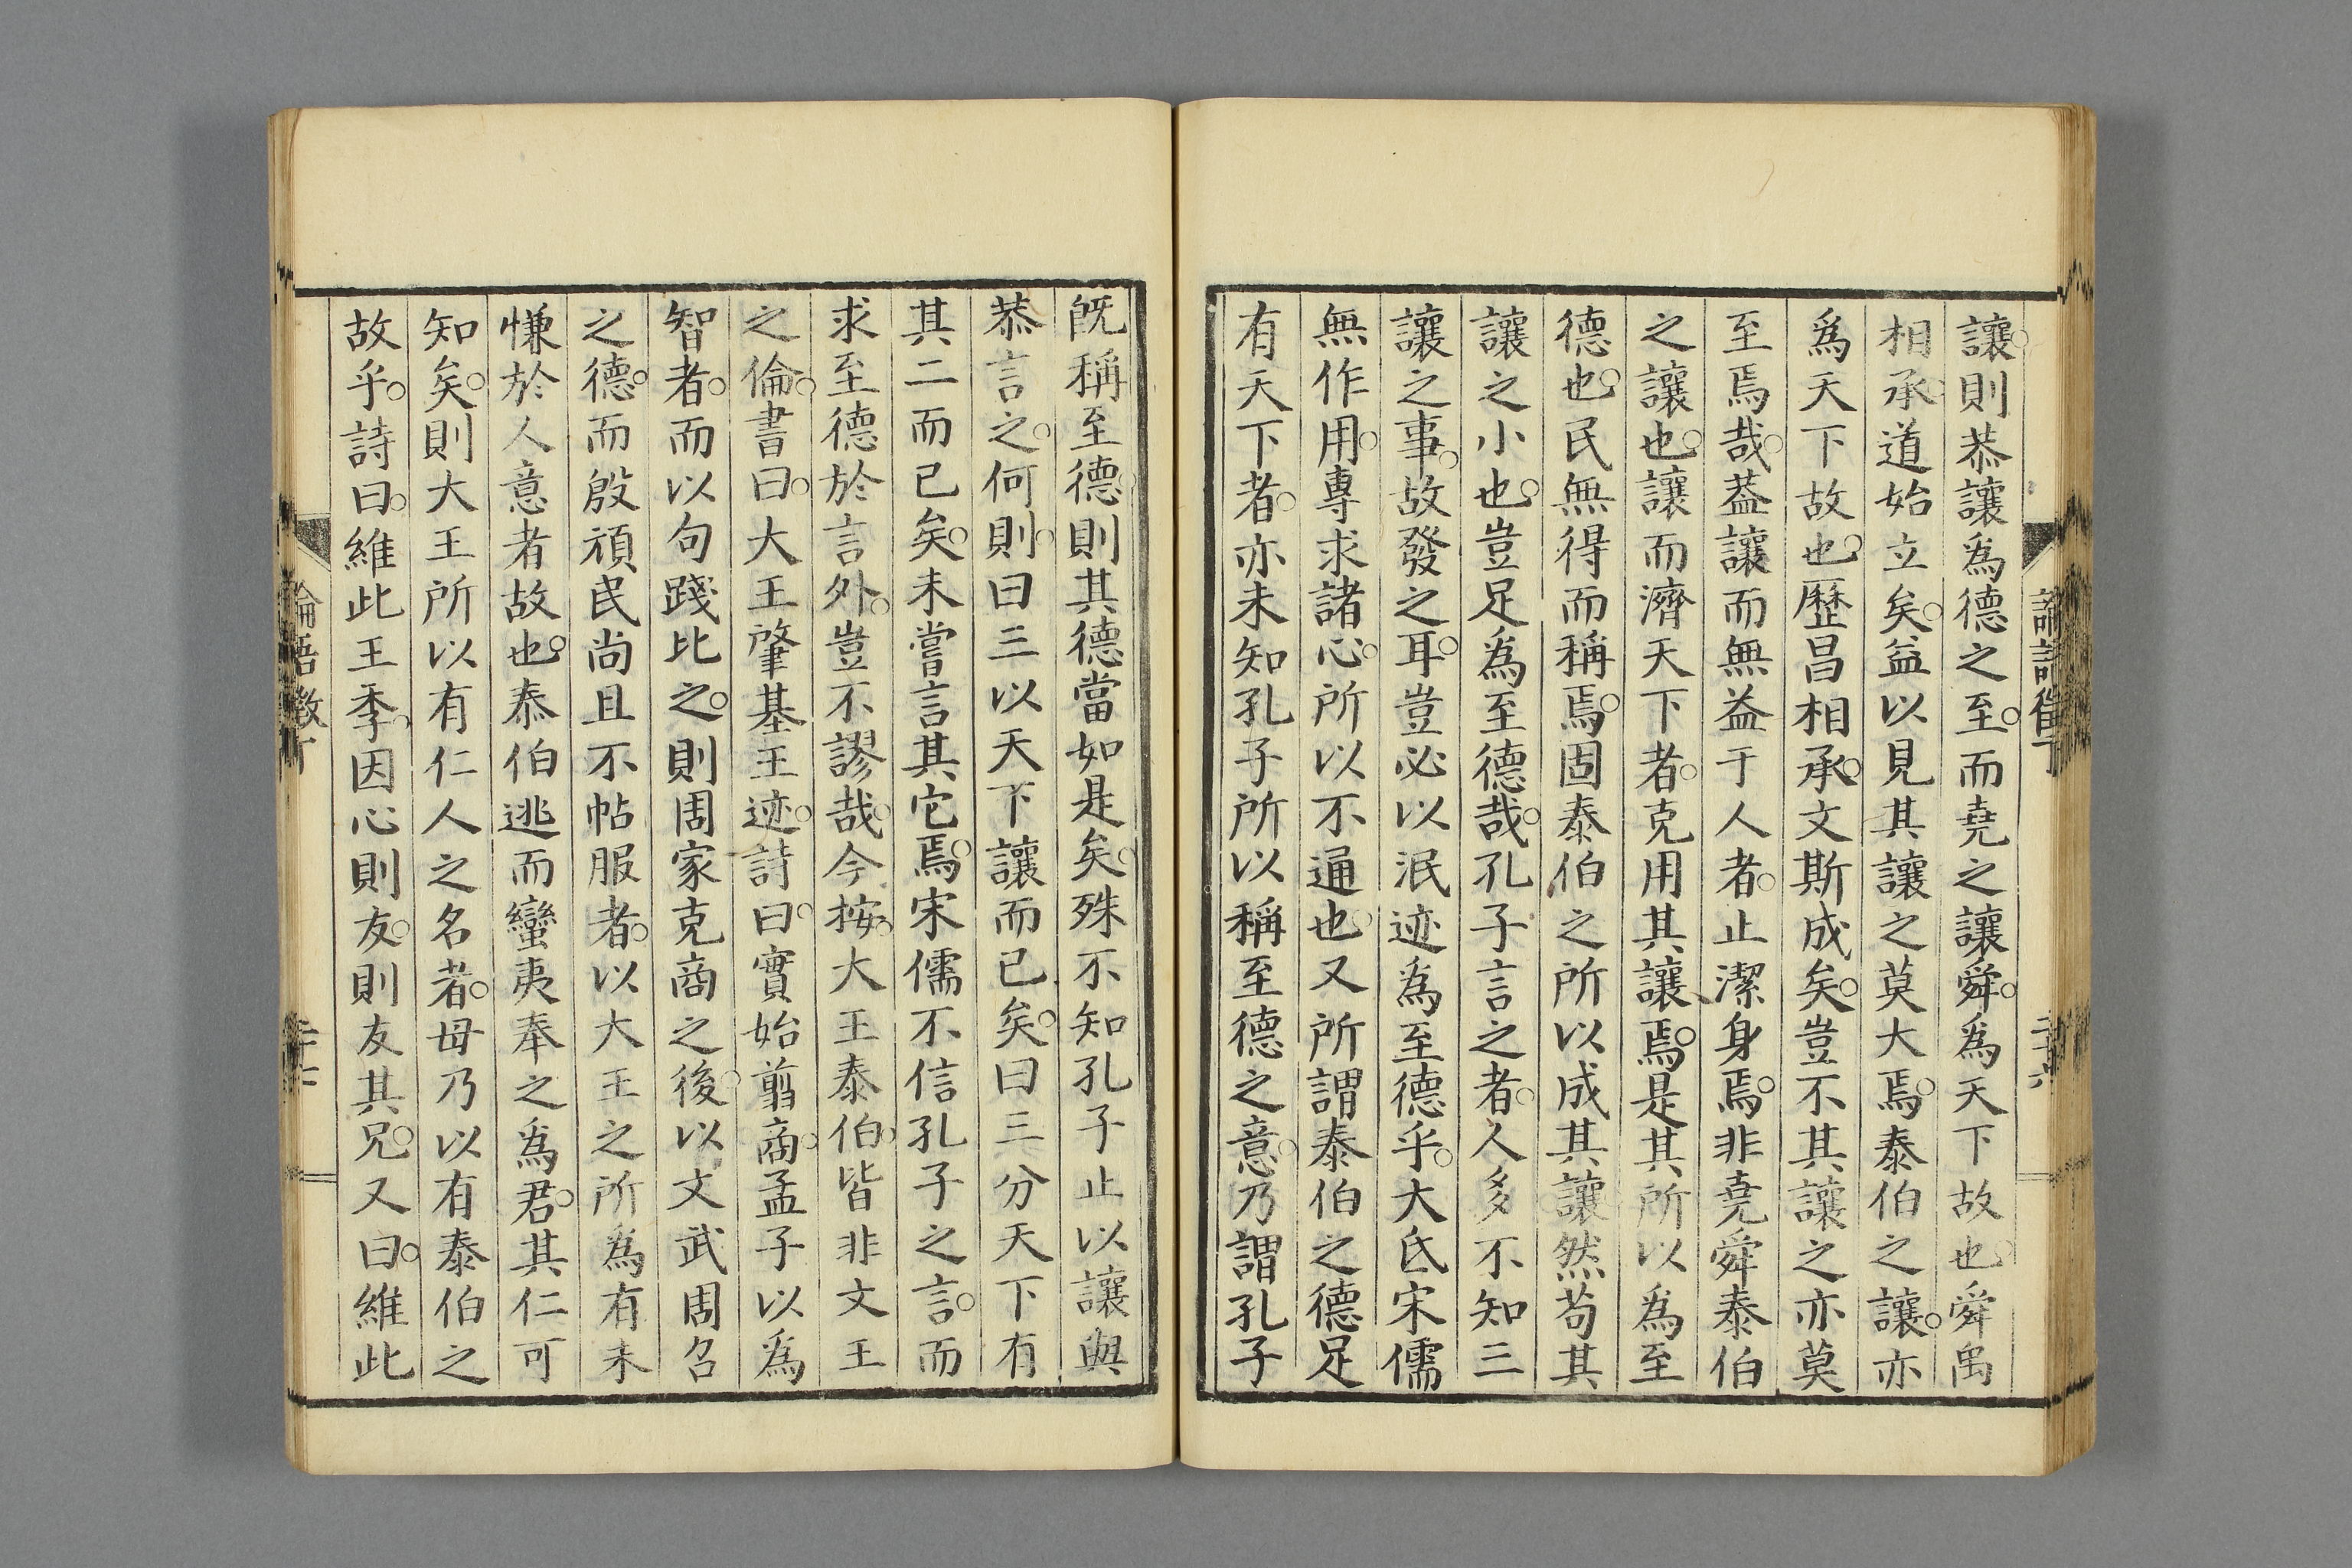 讓則恭讓爲德之至○而堯之讓舜○爲天下故也○舜禹
相承○道始立矣○益以見其讓之莫大焉○泰伯之讓○亦
爲天下故也○歷昌相承○文斯成矣○豈不其讓之亦莫
至焉哉○葢讓而無益于人者○止潔身焉○非堯舜泰伯
之讓也○讓而濟天下者○克用其讓焉○是其所以爲至
德也○民無得而稱焉○固泰伯之所以成其讓然苟其
讓之小也○豈足爲至德哉○孔子言之者○人多不知三
讓之事○故發之耳○豈必以泯迹爲至德乎○大氐宋儒
無作用○專求諸心○所以不通也○又所謂泰伯之德足
有天下者○亦未知孔子所以稱至德之意○乃謂孔子
既稱至德○則其德當如是矣○殊不知孔子止以讓與
恭言之○何則○曰三以天下讓而已矣○曰三分天下有
其二而已矣○未嘗言其它焉○宋儒不信孔子之言○而
求至德於言外○豈不謬哉○今按○大王泰伯○皆非文王
之倫○書曰○大王肇基王迹○詩曰○實始翦商○孟子以爲
智者○而以句踐比之○則周家克商之後○以文武周召
之德○而殷頑民尚且不帖服者○以大王之所爲有未
慊於人意者故也○泰伯逃而蠻夷奉之爲君○其仁可
知矣○則大王所以有仁人之名者○毋乃以有泰伯之
故乎○詩曰○維此王季○因心則友○則友其兄○又曰○維此